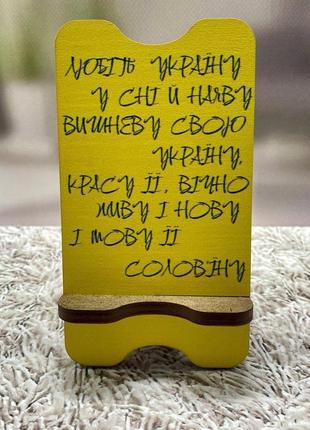 ЛЮБІТЬ УКРАЇНУ
У СНІ Й НАЯВУ
ВИШНЕВУ СВОЮ
УКРАЇНУ,
КРАСУ ЇЇ, ВІЧНО
ЖИВУ І НОВУ
І МОВУ ЇЇ
СОЛОВ'ЇНУ